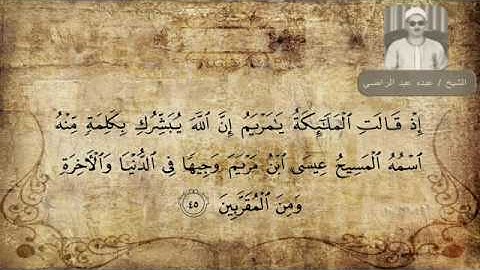 الشيخ / عبده عبد الراضي
إِذْ قَالَتِ الْمَلَٰٓئِكَةُ يَٰمَرْيَمُ إِنَّ اللَّهَ يُبَشِّرُكِ بِكَلِمَةٍ مِّنْهُ
اسْمُهُ الْمَسِيحُ عِيسَى ابْنُ مَرْيَمَ وَجِيهًا فِى الدُّنْيَا وَالْءَاخِرَةِ
وَمِنَ الْمُقَرَّبِينَ ٤٥